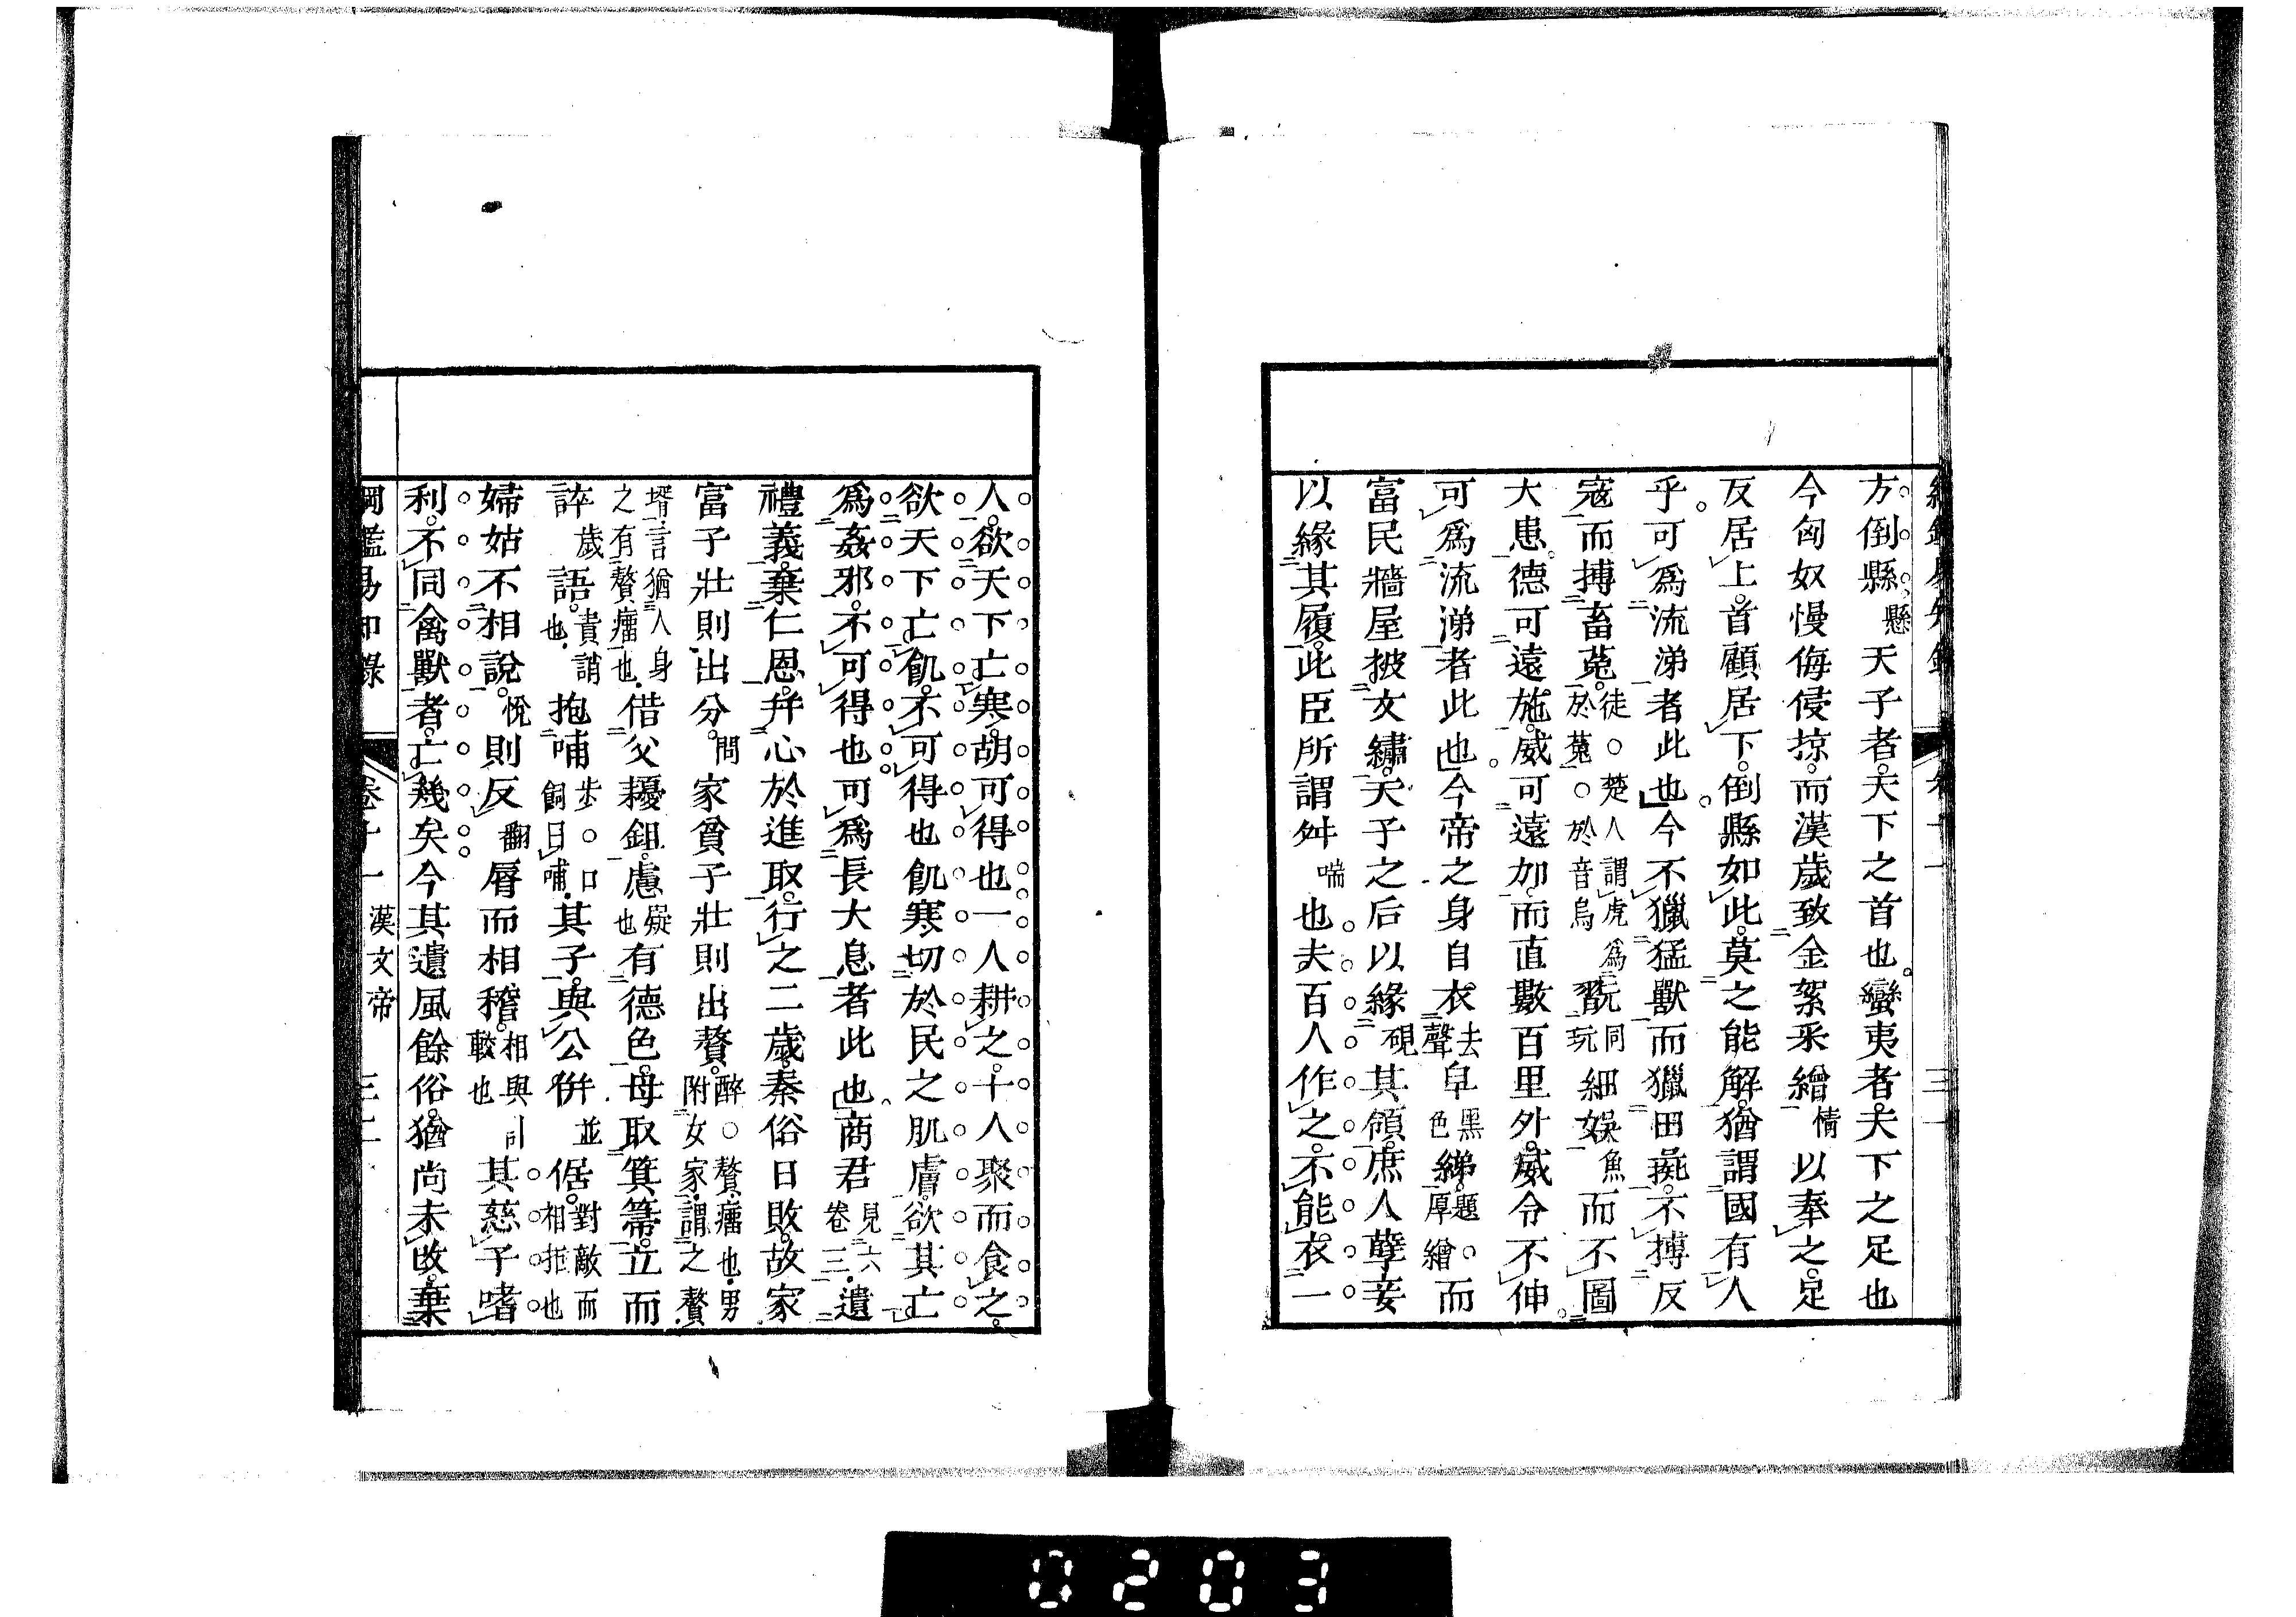 方倒縣懸天子者天下之首也蠻夷者天下之足也
今匈奴慢侮侵掠而漢歲致金絮采繒情以奉之足
反居上首顧居下倒縣如此莫之能解猶謂國有人
乎可爲流涕者此也今不獵猛獸而獵田彘不搏反
寇而搏畜菟徒○楚人謂虎爲於菟○於音烏翫同玩細娛魚而不圖
大患德可遠施威可遠加而直數百里外威令不伸
可爲流涕者此也今帝之身自衣去聲皁黑色綈題○厚繒而
富民牆屋披文繡天子之后以緣硯其領庶人孽妾
以緣其履此臣所謂舛喘也夫百人作之不能衣一
人欲天下亡寒胡可得也一人耕之十人聚而食之
欲天下亡飢不可得也飢寒切於民之肌膚欲其亡
爲姦邪不可得也可爲長大息者此也商君見六卷三遺
禮義棄仁恩幷心於進取行之二歲秦俗日敗故家
富子壯則出分問家貧子壯則出贅醉○贅瘤也男附女家謂之贅
壻言猶人身之有贅瘤也借父耰鉏慮疑也有德色母取箕箒立而
誶歲語責誚也抱哺步○口飼曰哺其子與公倂並倨對敵而相拒也
婦姑不相說悅則反翻脣而相稽相與計較也其慈子嗜
利不同禽獸者亡幾矣今其遺風餘俗猶尚未改棄
綱鑑易知錄 卷十一 漢文帝 三二